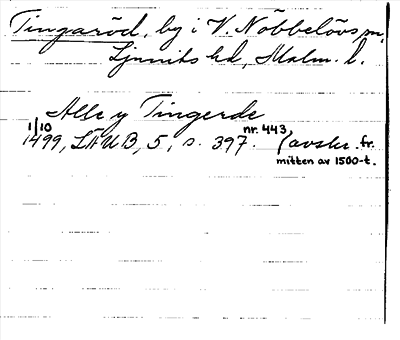 Tingaröd, by i V. Nöbbelövs sn,
Ljunits hd, Malm. l.
Alle y Tingerde
1/10 1499, LÄUB, 5, s. 397. nr. 443, (avskr. fr.
mitten av 1500-t.